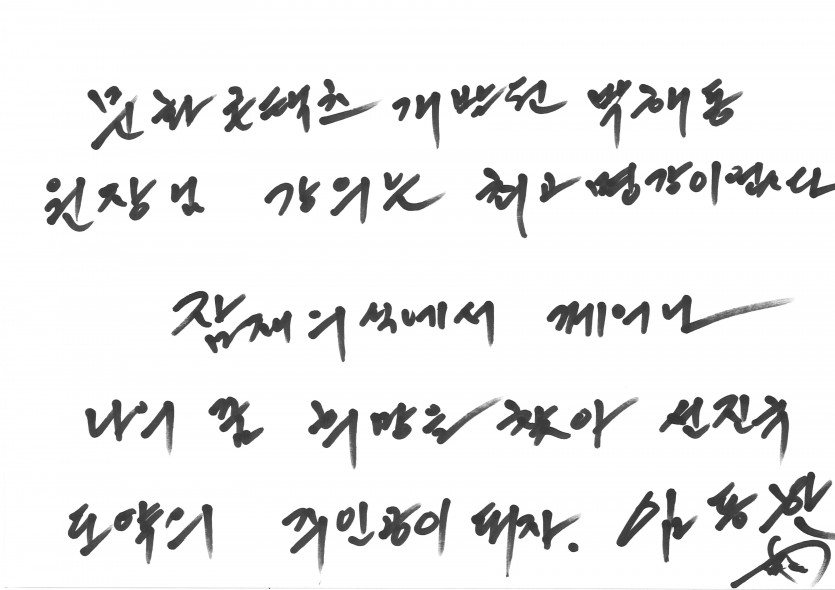 문화콘텐츠 개발원 박재동
원장님 강의는 최고 명강이였습니다
잠재의식에서 깨어나
나의 꿈 희망을 찾아 선진국
도약의 주인공이 되자. 임동